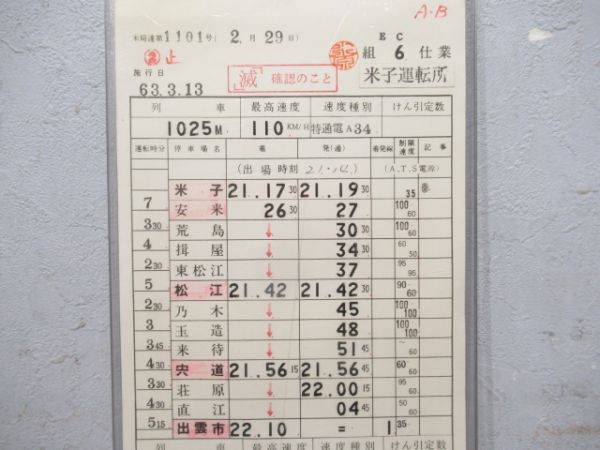 A・B
本局達第1101号(2.月29日)
EC
②止
組6仕業
施行日
「滅」確認のこと
米子運転所
63.3.13
列車 最高速度 速度種別 けん引定数
1025M 110KM/H 特通電A34
運転時分 停車場名 着 発(通) 着発線 制限速度 記事
(出場時刻 21.14.) (A.T.S電源)
米子 21.17 30 21.19 30 35
7
安来 26 30 27 100 60
3 30
荒島 ↓ 30 30 100 60
4
揖屋 ↓ 34 30 60 50
2 30
東松江 ↓ 37 95 95
5
松江 21.42 21.42 30 90 60
2 30
乃木 ↓ 45 100 100
3
玉造 ↓ 48 100 100
3 45
来待 ↓ 51 45 60
4 30
宍道 21.56 15 21.56 45 60 60
3 30
荘原 ↓ 22.00 15 60
4 30
直江 ↓ 04 45 50
5 15
出雲市 22.10 = 1 35
列車 最高速度 速度種別 けん引定数